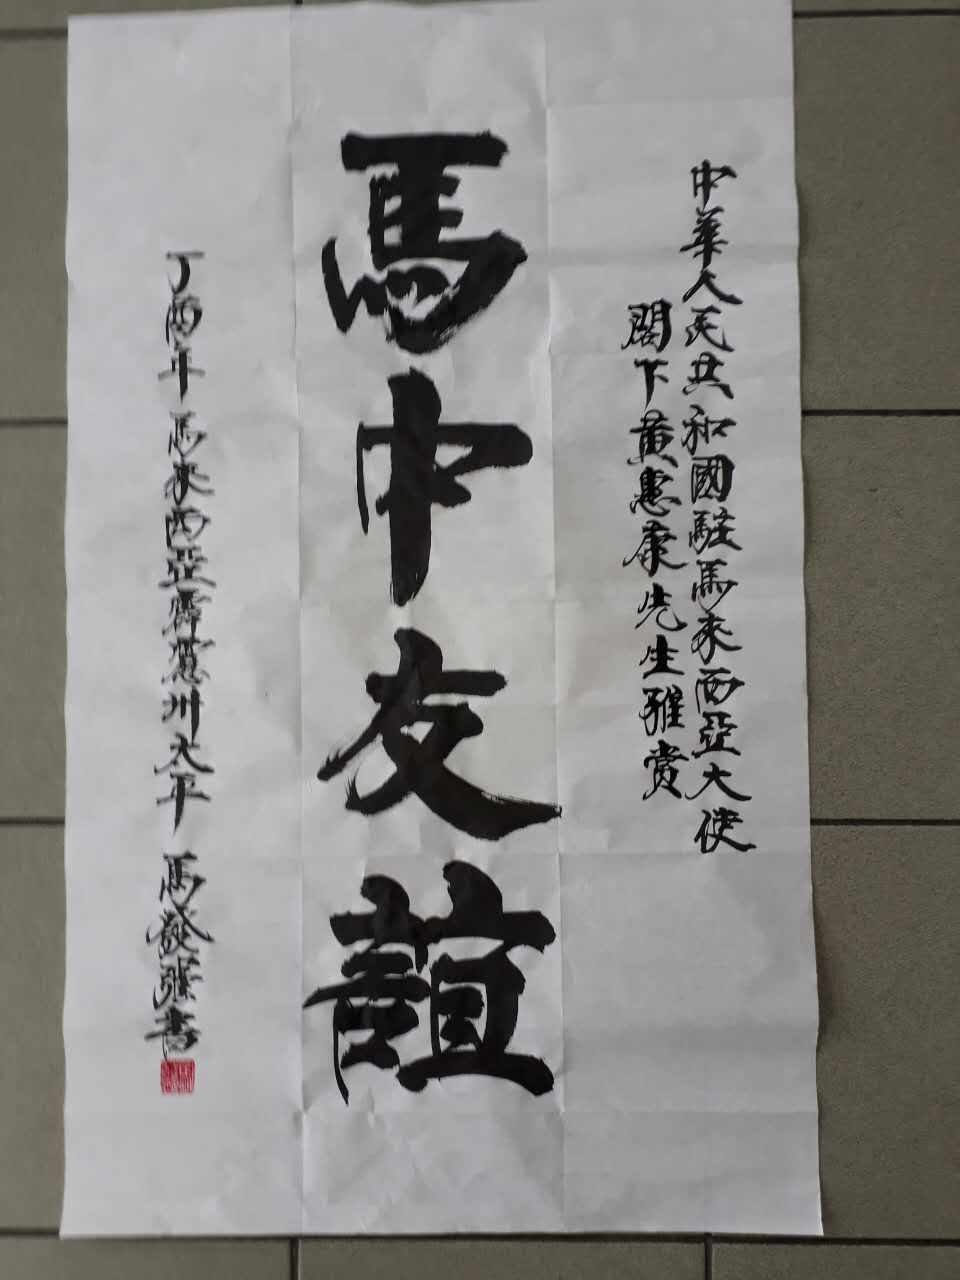 中華人民共和國駐馬來西亞大使
閣下黃惠康先生雅賞
馬中友誼
丁酉年 馬來西亞霹靂州太平 馬發強書